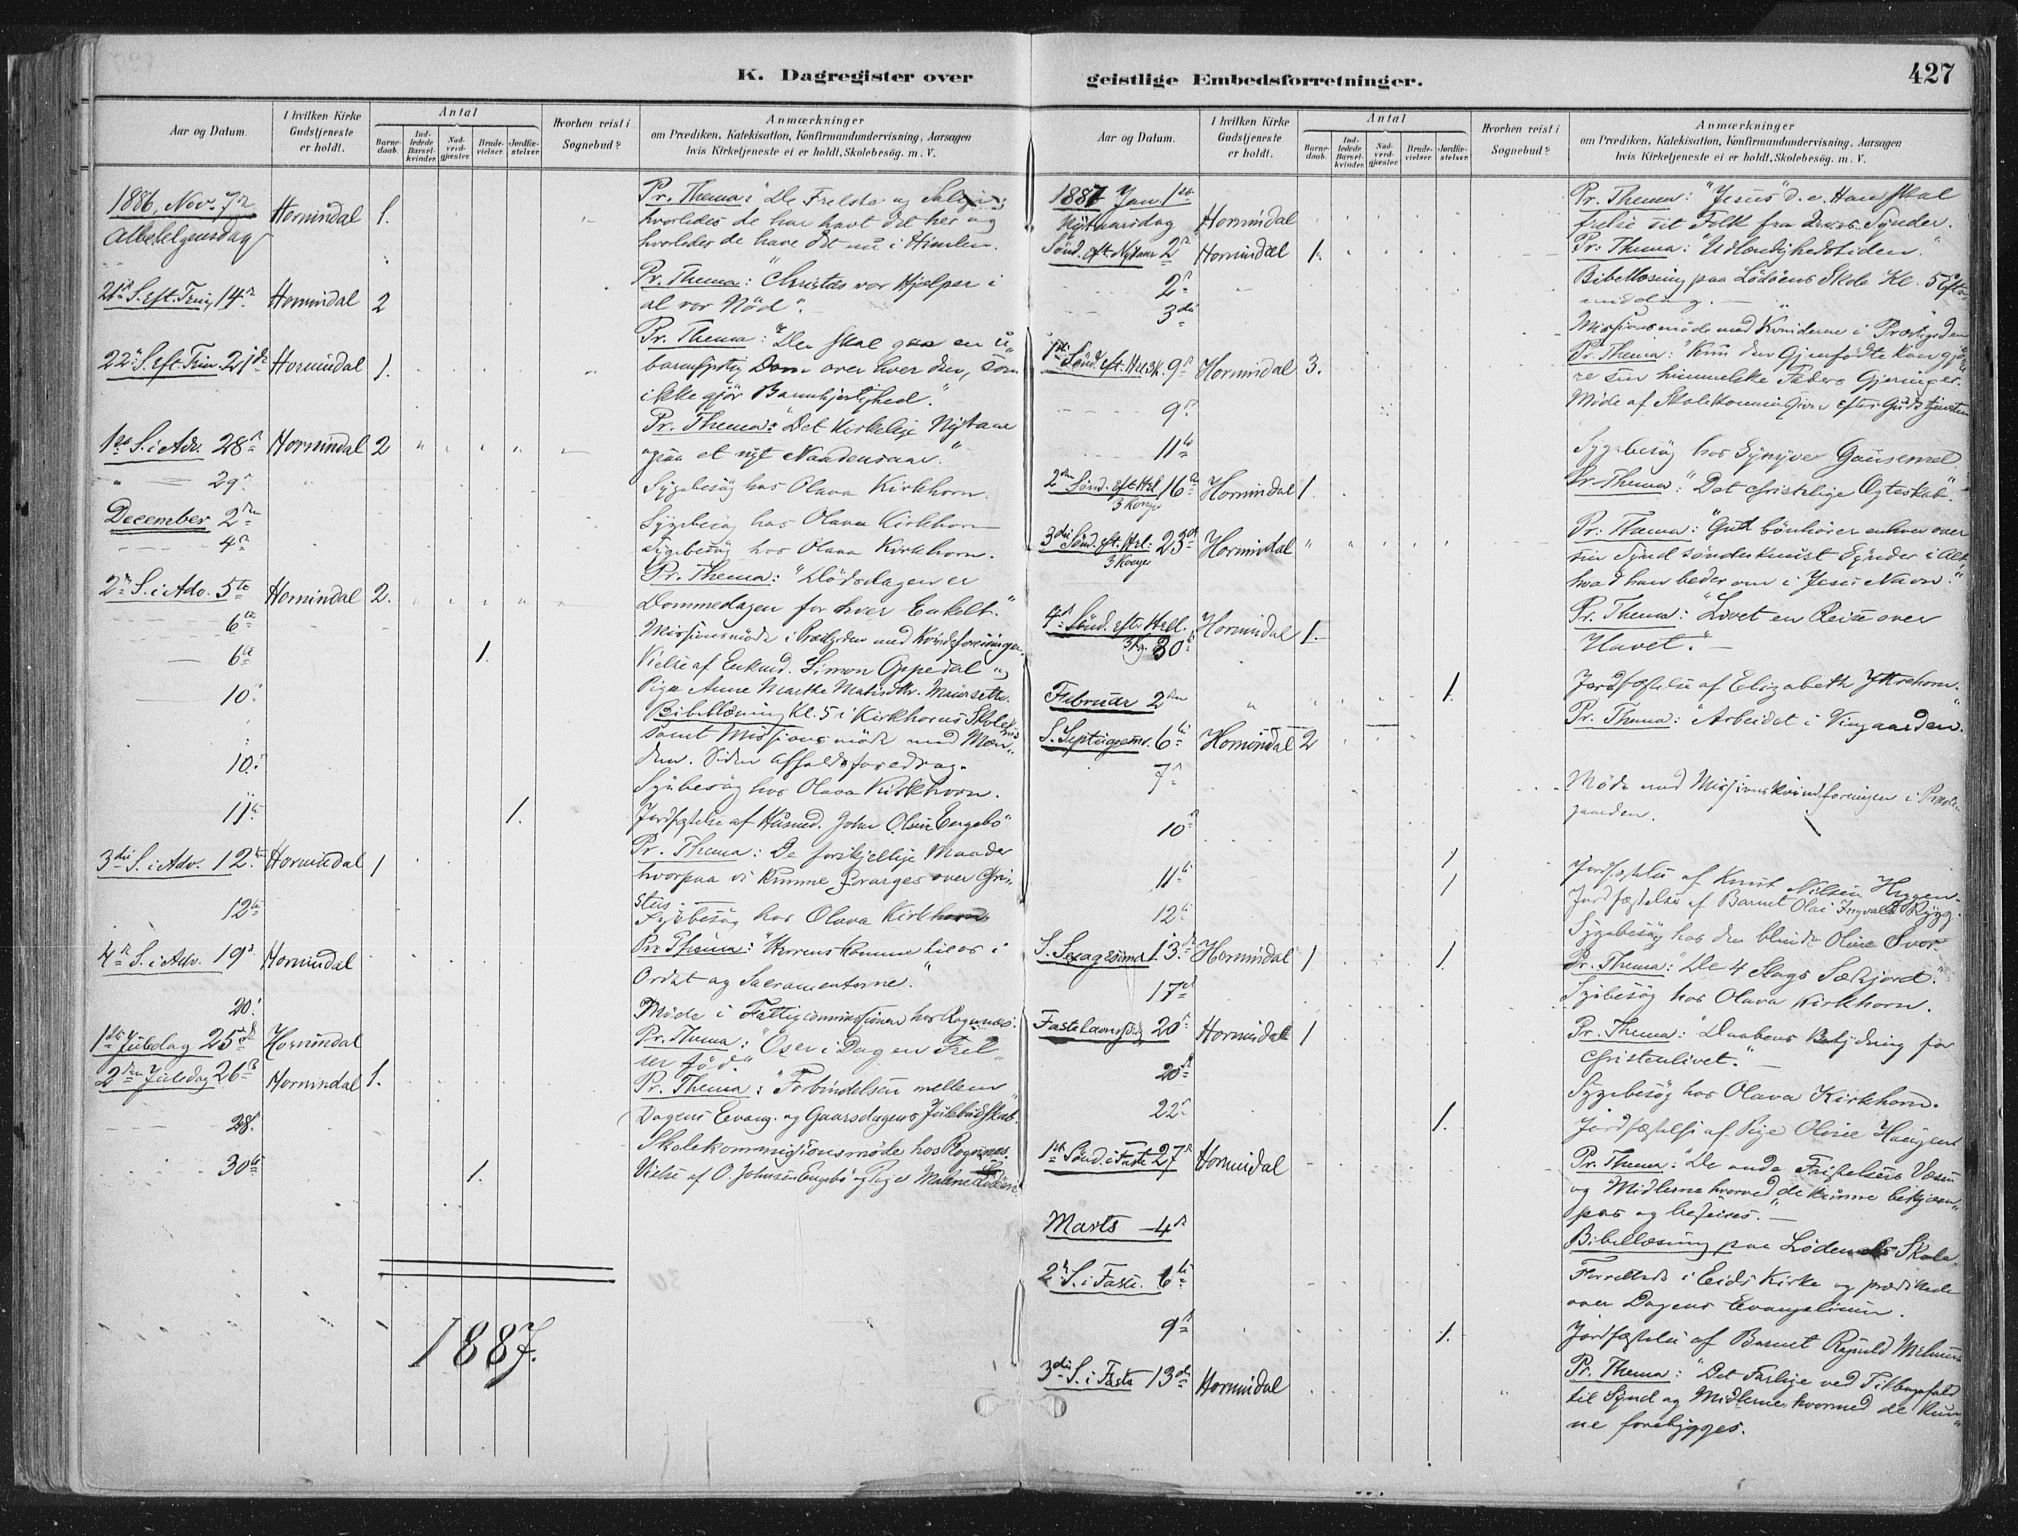 K. Dagregister over
geistlige Embedsforretninger.
427
Aar og Datum.
I hvilken Kirke
Gudstjeneste
er holdt.
Antal
Barne-
daab.
Ind-
ledede
Barsel-
kvinder.
Nad-
verd-
gjester.
Brude-
vielser.
Jordfæ-
stelser.
Hvorhen reist i
Sognebud?
Anmærkninger
om Prædiken, Katekisation, Konfirmandundervisning, Aarsagen
hvis Kirketjeneste ei er holdt, Skolebesøg. m. V.
1886, Nov. 7de Hornindal 1.
Pr. Thema: "De Frelste og Salige;
hvorledes de har havt det her og
hvorledes de have det nu i Himlen.
21de S. eft. Trin, 14de Hornindal 2
Pr. Thema: "Christus vor Hjælper i
al vor Nöd".
22de S. eft. Trin. 21de Hornindal 1.
Pr. Thema: "Der skal gaa en u-
barmhjertig Dom over hver den, som
ikke gjör Barmhjertighed."
1ste S. i Adv. 28de Hornindal 2
Pr. Thema: "Det Kirkelige Nytaar
ogsaa et nyt Naadensaar."
29de
Sygebesög hos Olava Kirkhorn.
December 2den
Sygebesög hos Olava Kirkhorn
4de
Sygebesög hos Olava Kirkhorn.
2den S. i Adv. 5te Hornindal 2.
Pr. Thema: "Dödsdagen er
Dommedagen for hver Enkelt."
6te
Missionsmöde i Præstgden med Kvindeforeningen
6te 1.
Vielse af Enkmd. Simon Oppedal og
Pige Anne Marthe Matisdtr. Maurseth.
10de
Bibellæsning Kl. 5 i Kirkhorns Skolehus
samt Missionsmöde med Mæn-
den. Siden Afholdsforedrag.
10de
Sygebesög hos Olava Kirkhorn.
11te 1.
Jordfæstelse af Husmd. John Olsen Engebö
3die S. i Adv. 12te Hornindal 1
Pr. Thema: De forskjellige Maader
hvorpaa vi kunne forarges over Chri-
stus.
12te
Sygebesög hos Olava Kirkhorn
4de S. i Adv. 19de Hornindal
Pr. Thema: "Herrens Komme til os i
Ordet og Sacramenterne."
20de
Möde i Fattigcommissionen hos Rognnes.
1ste Juledag 25de Hornindal
Pr. Thema: "Os er i Dag en Frel-
ser föd."
2den Juledag 26de Hornindal 1.
Pr. Thema: "Forbindelsen mellem
Dagens Evang. og Gaarsdagens Julebudskab.
28de
Skolekommissionsmöde hos Rognnes.
30te 1.
Vielse af O. Johnsen Engebö og Pige Malene
1887.
Aar og Datum.
I hvilken Kirke
Gudstjeneste
er holdt.
Antal
Barne-
daab.
Ind-
ledede
Barsel-
kvinder.
Nad-
verd-
gjester.
Brude-
vielser.
Jordfæ-
stelser.
Hvorhen reist i
Sognebud?
Anmærkninger
om Prædiken, Katekisation, Konfirmandundervisning, Aarsagen
hvis Kirketjeneste ei er holdt, Skolebesøg. m. V.
1887 Jan. 1ste
Nytaarsdag Hornindal
Pr. Thema: "Jesus" d. e. Han skal
frelse sit Folk fra deres Synder.
Sönd. eft. Nytaar 2den Hornindal 1.
Pr. Thema: "Udlændighedstiden."
2den
Bibellæsning paa Lödöens Skole Kl. 5 Efter-
middag.
3die
Missionsmöde med Kvinderne i Præstgden
1ste Sönd. eft. Hel. 3K. 9de Hornindal 3.
Pr. Thema: "Kun den Gjenfödte kan gjö-
re sin himmelske Faders Gjerninger.
9de
Möde af Skolekommissionen efter Gudstjenesten
11te
Sygebesög hos Synnöve Gausemel
2den Sönd. eft. Hel. 3 Konger 16de Hornindal 1.
Pr. Thema: "Det christelige Ægteskab".
3die Sönd. eft. Hel. 3 Konger 23de Hornindal
Pr. Thema: "Gud bönhörer enhver over
sin Synd sönderknust Synder i Alt
hvad han beder om i Jesu Navn."
4de Sönd. efter Hell. 3Kg. 30te Hornindal 1.
Pr. Thema: "Livet en Reise over
Havet."
Februar 2den 1.
Jordfæstelse af Elizabeth Ytrehorn.
S. Septuagesima 6te Hornindal 2
Pr. Thema: "Arbeidet i Vingaarden."
7de
Möde med Missionskvindeforeningen i Præste-
gaarden.
10de 1
Jordfæstelse af Knut Nilsen Haugen
11te 1
Jordfæstelse af Barnet Olai Ingvald Rygg
12te
Sygebesög hos den blinde Oline Svor.
S. Sexagesima 13de Hornindal 1 1.
Pr. Thema: "De 4 Slags Sædejord."
17de
Sygebesög hos Olava Kirkhorn.
Fastelavnssöndg 20de Hornindal 1
Pr. Thema: "Daabens Betydning for
Christenlivet."
20de
Sygebesög hos Olava Kirkhorn.
22de 1.
Jordfæstelse af Pige Oline Haugen
1ste Sönd. i Faste 27de Hornindal
Pr. Thema: "De onde Fristelsers Væsen
og Midlerne hvorved de kunne bekjæm-
pes og beseires."
Marts 4de
Bibellæsning paa Lödemels Skole.
2den S. i Faste. 6te
Forrettede i Eids Kirke og prædikede
over Dagens Evangelium.
9de 1.
Jordfæstelse af Barnet Ragnild
3die S. i Faste 13de Hornindal
Pr. Thema: "Det Farlige ved Tilbagefald
til Synd og Midlerne, hvormed de kun-
ne forebygges.